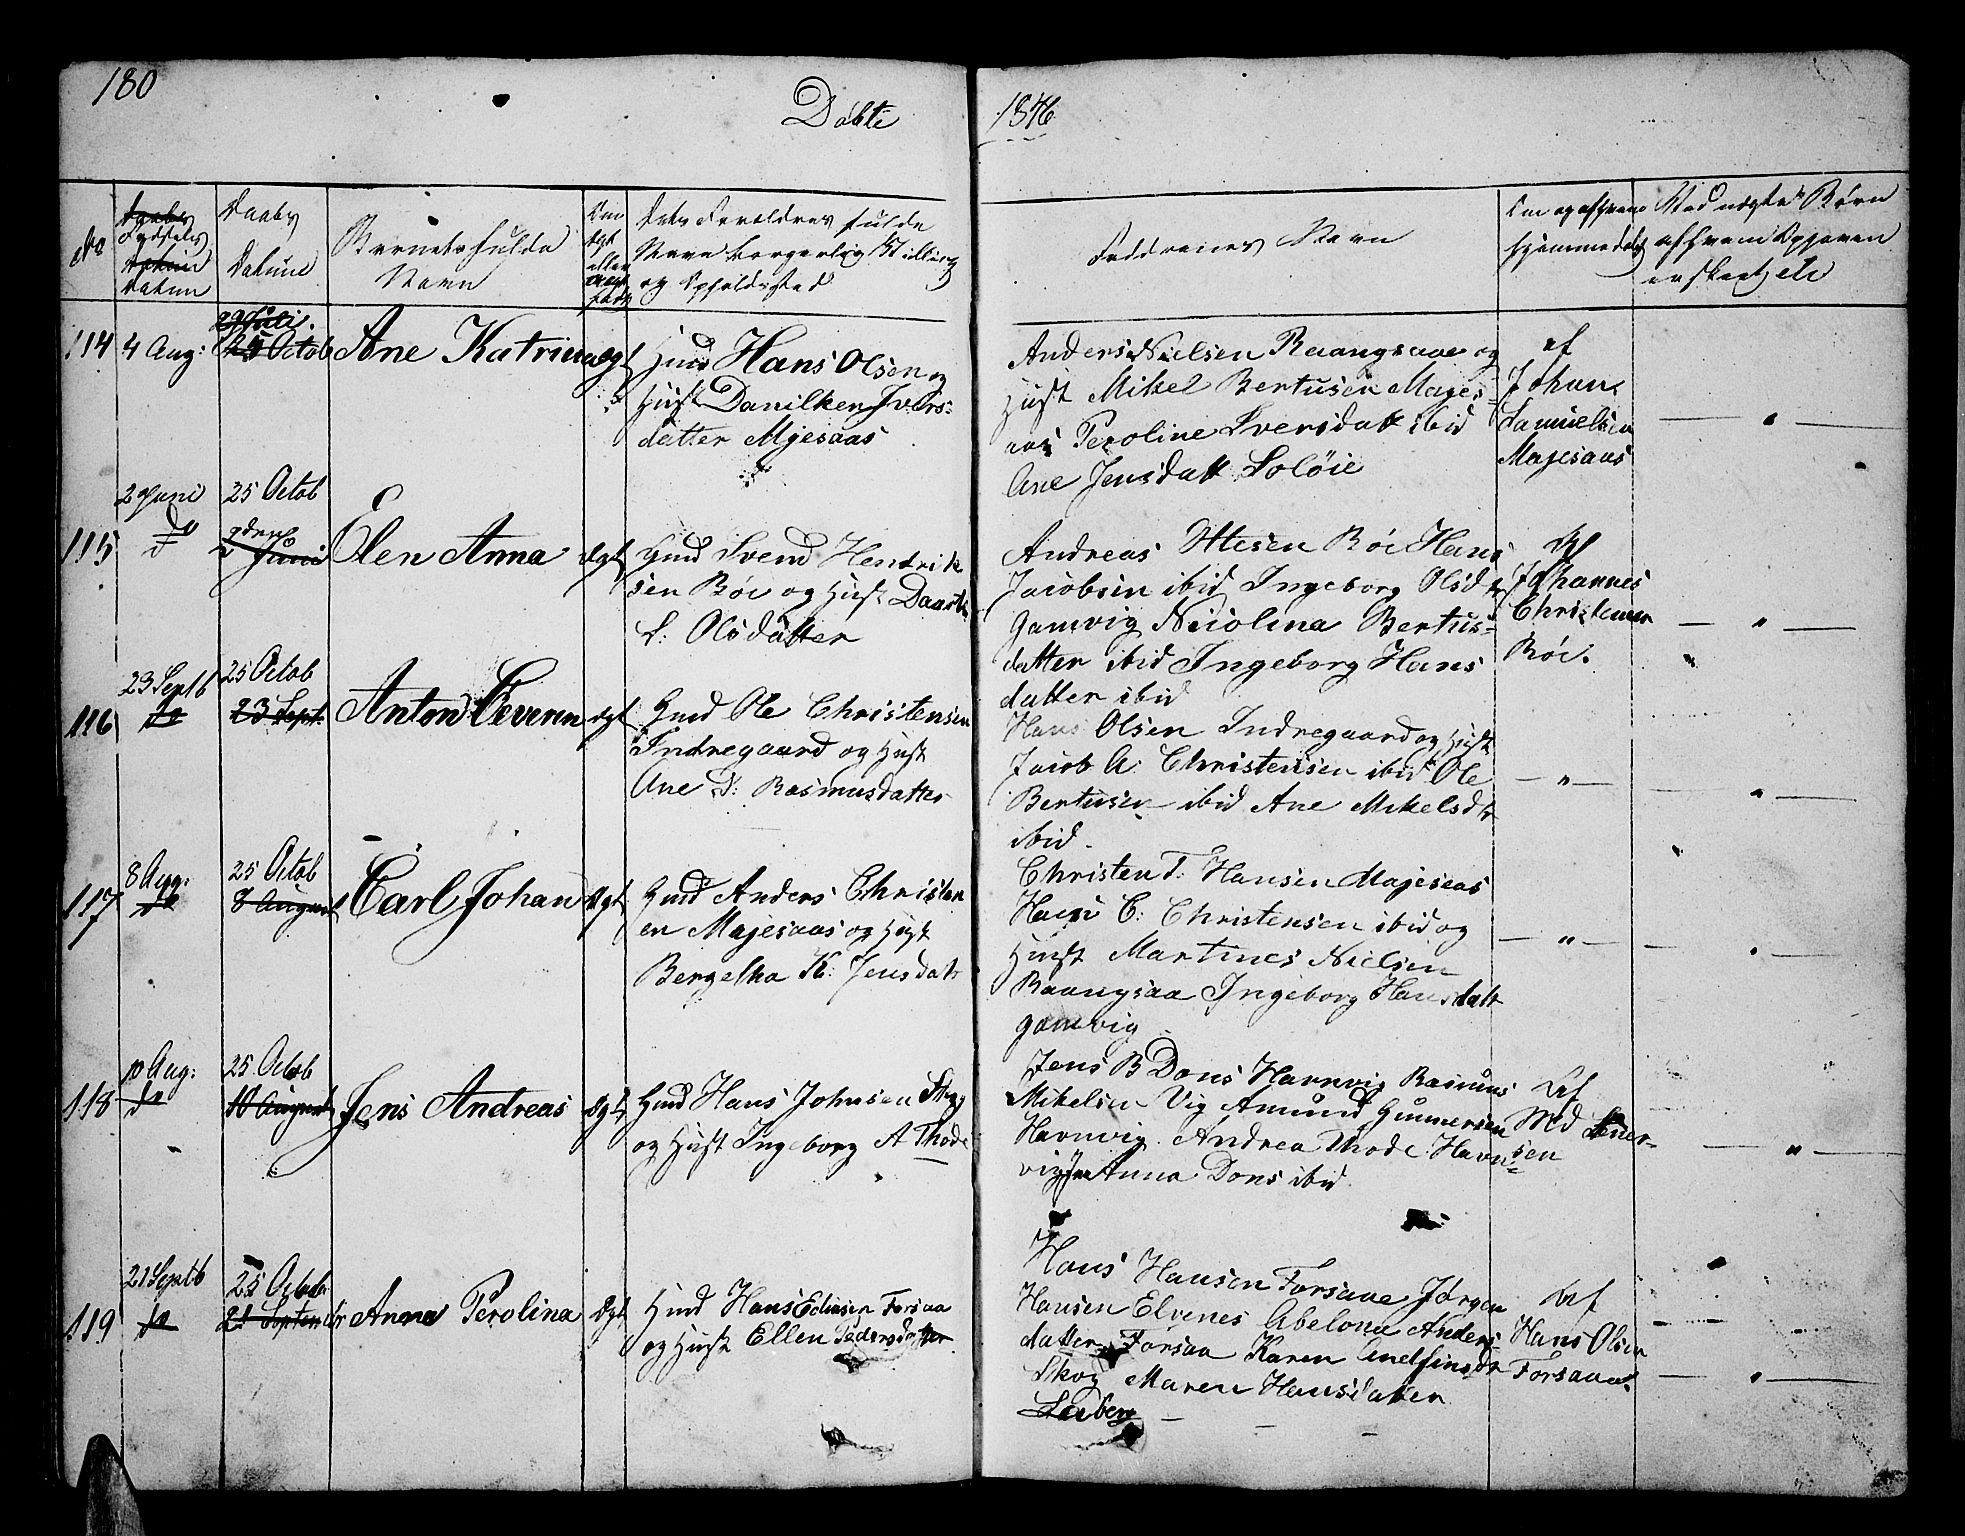 180
Døbte
1846
No
Fødsels
Datum
Daabs
Datum
Barnets fulde
Navn
Om
ægt
eller
uægt
født
Dets Forældres fulde
Navn borgerlig Stilling
og Opholdssted
Faddernes Navn
Om og af hvem
hjemmedøbt
Med uægte Børn
af hvem Opgaven
er skeet etc
114
4 Aug:
29 Juli.
25 Octob
Ane Katrina
ægt
Hmd Hans Olsen og
Hust Danilken Ivers-
datter Mjesaas
Anders Nielsen Raangsaae og
Hust Mikel Bertusen Majes-
aas Peroline Iversdatt ibid
Ane Jensdatt Soløie
af
Johan
Samuelsen
Majesaas
"
115
2 Juni
do
25 Octob
Juni
Elen Anna
ægt
Hmd Svend Hendrik
sen Røi og Hust Daart
L: Olsdatter
Andreas Ottesen Røi Hans
Jacobsen ibid Ingeborg Olsdtr
Gamvig Nicolina Bertus-
datter ibid Ingeborg Hans
datter ibid
af
Johannes
Christensen
Røi.
"
116
23 Septb
do
25 Octob
23 Sept.
Anton Severin
ægt
Hmd Ole Christensen
Indregaard og Hust
Ane D: Rasmusdatter
Hans Olsen Indregaard og Hust
Jacob A: Christensen ibid Ole
Bertusen ibid Ane Mikelsdtr
ibid.
"
"
117
8 Aug:
do
25 Octob
8 August
Carl Johan
ægt
Hmd Anders Christen
en Majesaas og Hust
Bergetha K: Jensdatr
Christen T: Hansen Majesaas
Hans C: Christensen ibid og
Hust Martines Nielsen
Raangsaa Ingeborg Hansdatt
Gamvig
"
"
118
10 Aug:
do
25 Octob
10 August
Jens Andreas
ægt
Hmd Hans Johnsen
og Hust Ingeborg A Thode
Jens B Dons Havnvig Rasmus
Mikelsen Vig Amund Gunnersen
Havnvig Andrea Thode Havn-
vig Anna Dons ibid
af
Md
sen
"
119
21 Septb
do
25 Octob
21 Septembr
Anna Perolina
ægt
Hmd Hans Forsaa
og Hust Ellen Pedersdatter
Hans Hansen Forsaae Jørgen
Hansen Elvenes Abelona Anders-
datter Forsaa Karen
Skog Maren Hansdatter
af
Hans Olsen
Forsaae.
"